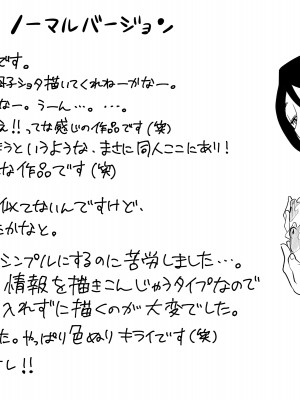 ノーマルバージョン
です。
母子ショタ描いてくれねーかなー。
なー。うーん…。…。
え!!ってな感じの作品です(笑)
まうというような、まさに同人ここにあり!
な作品です(笑)
似てないんですけど、
たかなと。
シンプルにするのに苦労しました…。
情報を描きこんじゃうタイプなので
入れずに描くのが大変でした。
た。やっぱり色ぬりキライです(笑)
ナレ!!